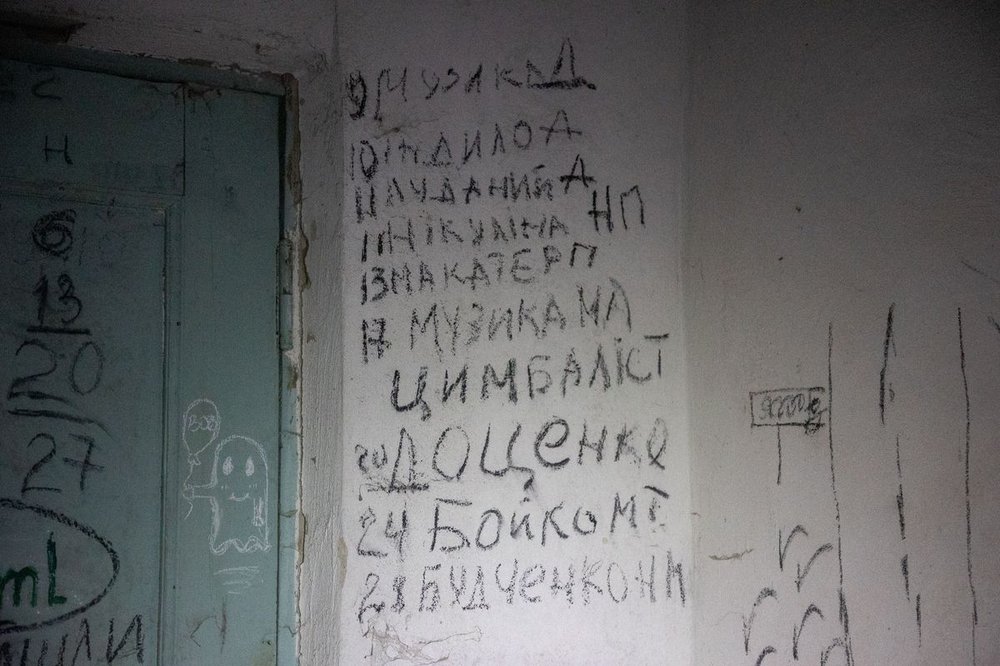 Н
6
13
20
27
mL
ШИЛИ
BOB
9 МУЗИКА Д
10 ІНДИЛО А
11 ЛУДАНИЙ А
11 НІКУЛІНА НП
13 МАКАТЕР П
17 МУЗИКА МА
ЦИМБАЛІСТ
20 ДОЦЕНКО
24 БОЙКО МІ
28 БУДЧЕНКО НН